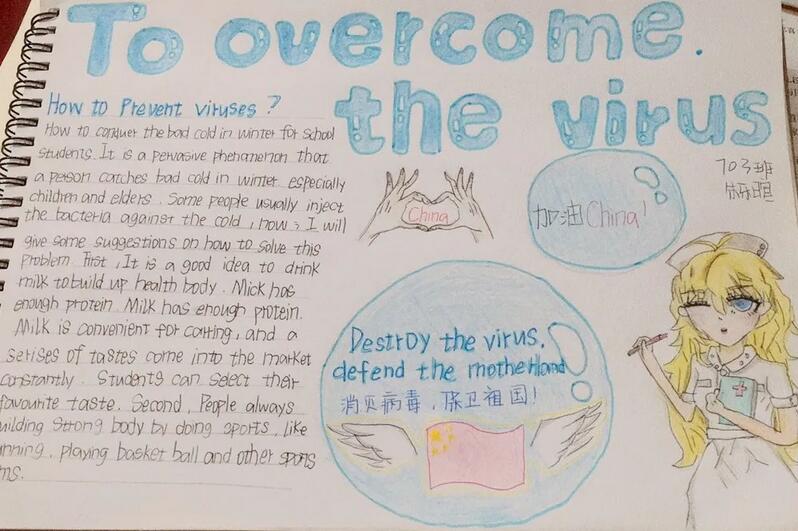 To overcome.
the virus
How to Prevent viruses?
How to conquer the bad cold in winter for school
students. It is a pervasive phenomenon that
a person catches bad cold in winter especially
children and elders. Some people usually inject
the bacteria against the cold, now, I will
give some suggestions on how to solve this
problem. First, It is a good idea to drink
milk to build up health body. Mick has
enough protein. Milk has enough protein.
Milk is convenient for carring, and a
serises of tastes come into the market
constantly. Students can select their
favourite taste. Second, People always
uilding strong body by doing sports, like
unning, playing basket ball and other sports
ms.
China
加油China!
703班
Destroy the virus,
defend the motherland
消灭病毒,保卫祖国!